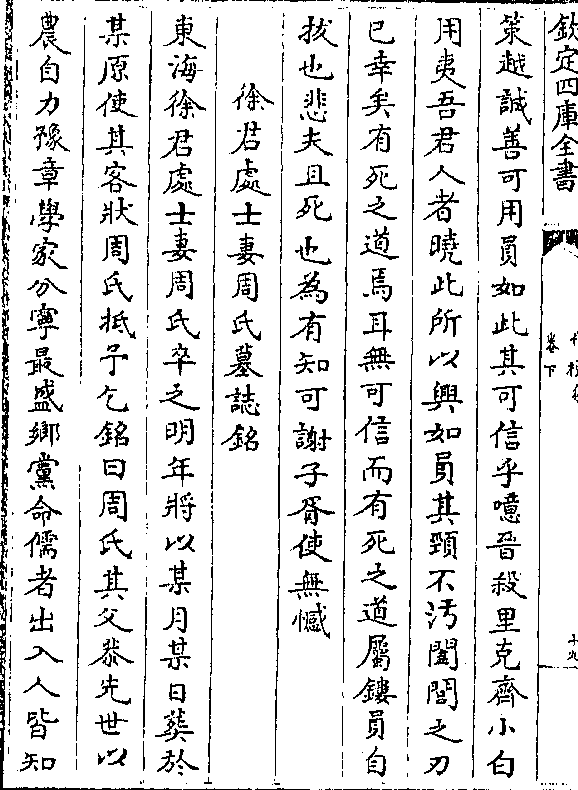 欽定四庫全書
卷下
十九
策越誠善可用員如此其可信乎噫晉殺里克齊小白
用夷吾君人者曉此所以興如員其頸不污闔閭之刃
已幸矣有死之道焉耳無可信而有死之道屬鏤員自
拔也悲夫且死也為有知可謝子胥使無憾
徐君處士妻周氏墓誌銘
東海徐君處士妻周氏卒之明年將以某月某日葬於
某原使其客狀周氏抵予乞銘曰周氏其父恭先世以
農自力豫章學家分寧最盛鄉黨命儒者出入人皆知